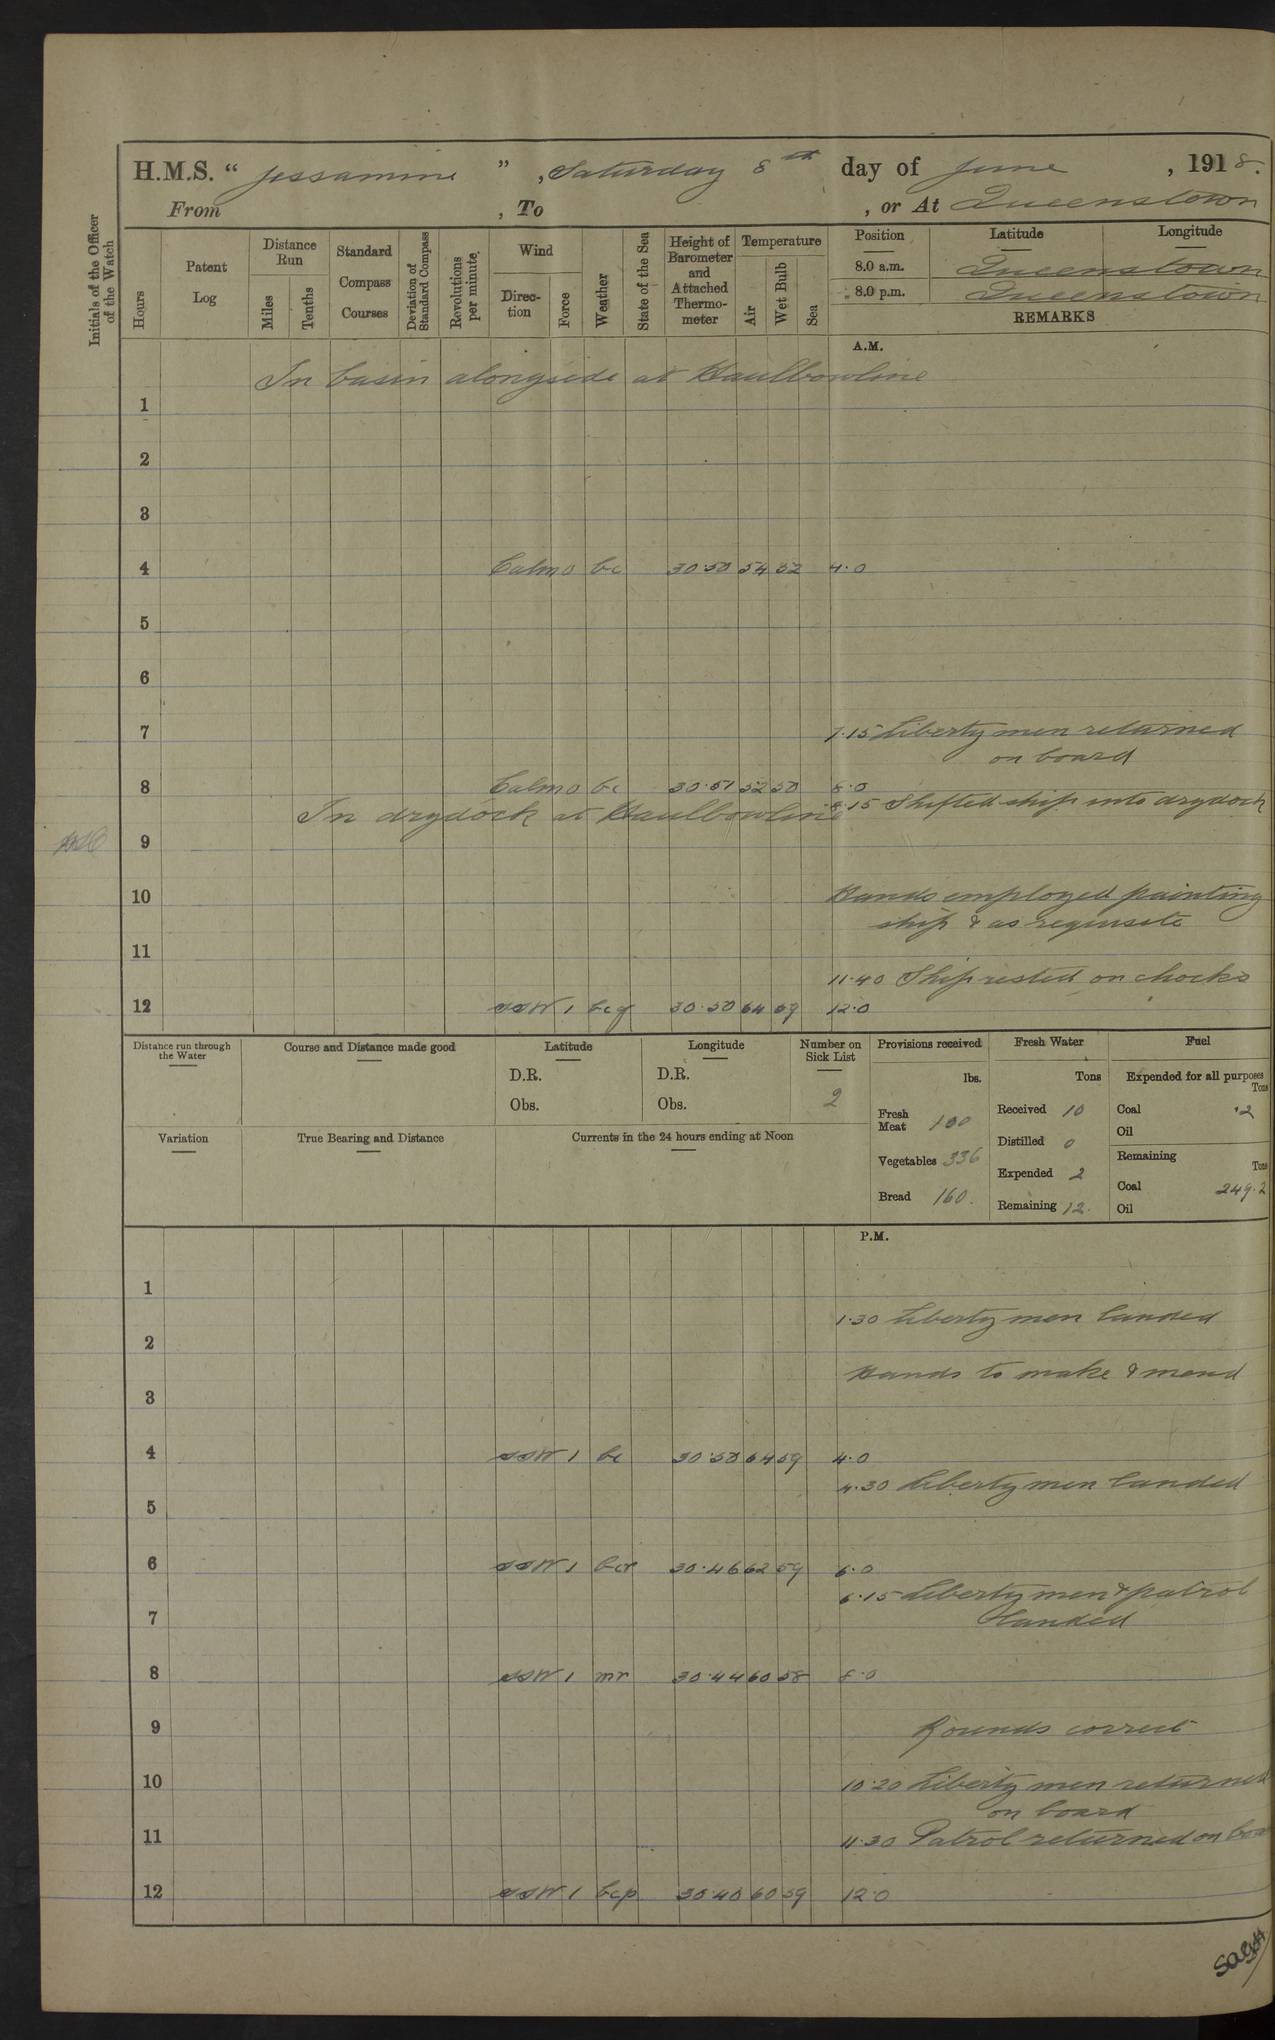 H.M.S. “ Jessamine ” , Saturday 8th day of June , 1918.
From , To , or At Queenstown
Initials of the Officer of the Watch
Hours
Patent Log
Distance Run
Miles
Tenths
Standard Compass Courses
Deviation of Standard Compass
Revolutions per minute
Wind
Direction
Force
Weather
State of the Sea
Height of Barometer and Attached Thermometer
Temperature
Air
Wet Bulb
Sea
Position Latitude Longitude
8.0 a.m. Queenstown
8.0 p.m. Queenstown
REMARKS
A.M.
In basin alongside at Haulbowline
1
2
3
4 Calm 0 bc 30.50 54 52 4.0
5
6
7 7.15 Liberty men returned
on board
8 Calm 0 bc 30.51 52 50 8.0
In drydock at Haulbowline 8.15 Shifted ship into drydock
9
10 Hands employed painting
ship & as requisite
11
11.40 Ship rested on chocks
12 SSW 1 bcg 30.50 64 59 12.0
Distance run through the Water
Course and Distance made good
Latitude
D.R.
Obs.
Longitude
D.R.
Obs.
Number on Sick List
2
Provisions received
lbs.
Fresh Meat 100
Vegetables 336
Bread 160.
Fresh Water
Tons
Received 10
Distilled 0
Expended 2
Remaining 12.
Fuel
Expended for all purposes
Tons
Coal .2
Oil
Remaining
Tons
Coal 249.2
Oil
Variation
True Bearing and Distance
Currents in the 24 hours ending at Noon
P.M.
1
1.30 Liberty men landed
2
Hands to make & mend
3
4 SSW 1 bc 30.50 64 59 4.0
4.30 Liberty men landed
5
6 SSW 1 bcr 30.46 62 59 6.0
6.15 Liberty men & patrol
landed
7
8 SSW 1 mr 30.44 60 58 8.0
9 Rounds correct
10 10.20 Liberty men returned
on board
11 11.30 Patrol returned on boa
12 SSW 1 bcp 30.40 60 59 12.0